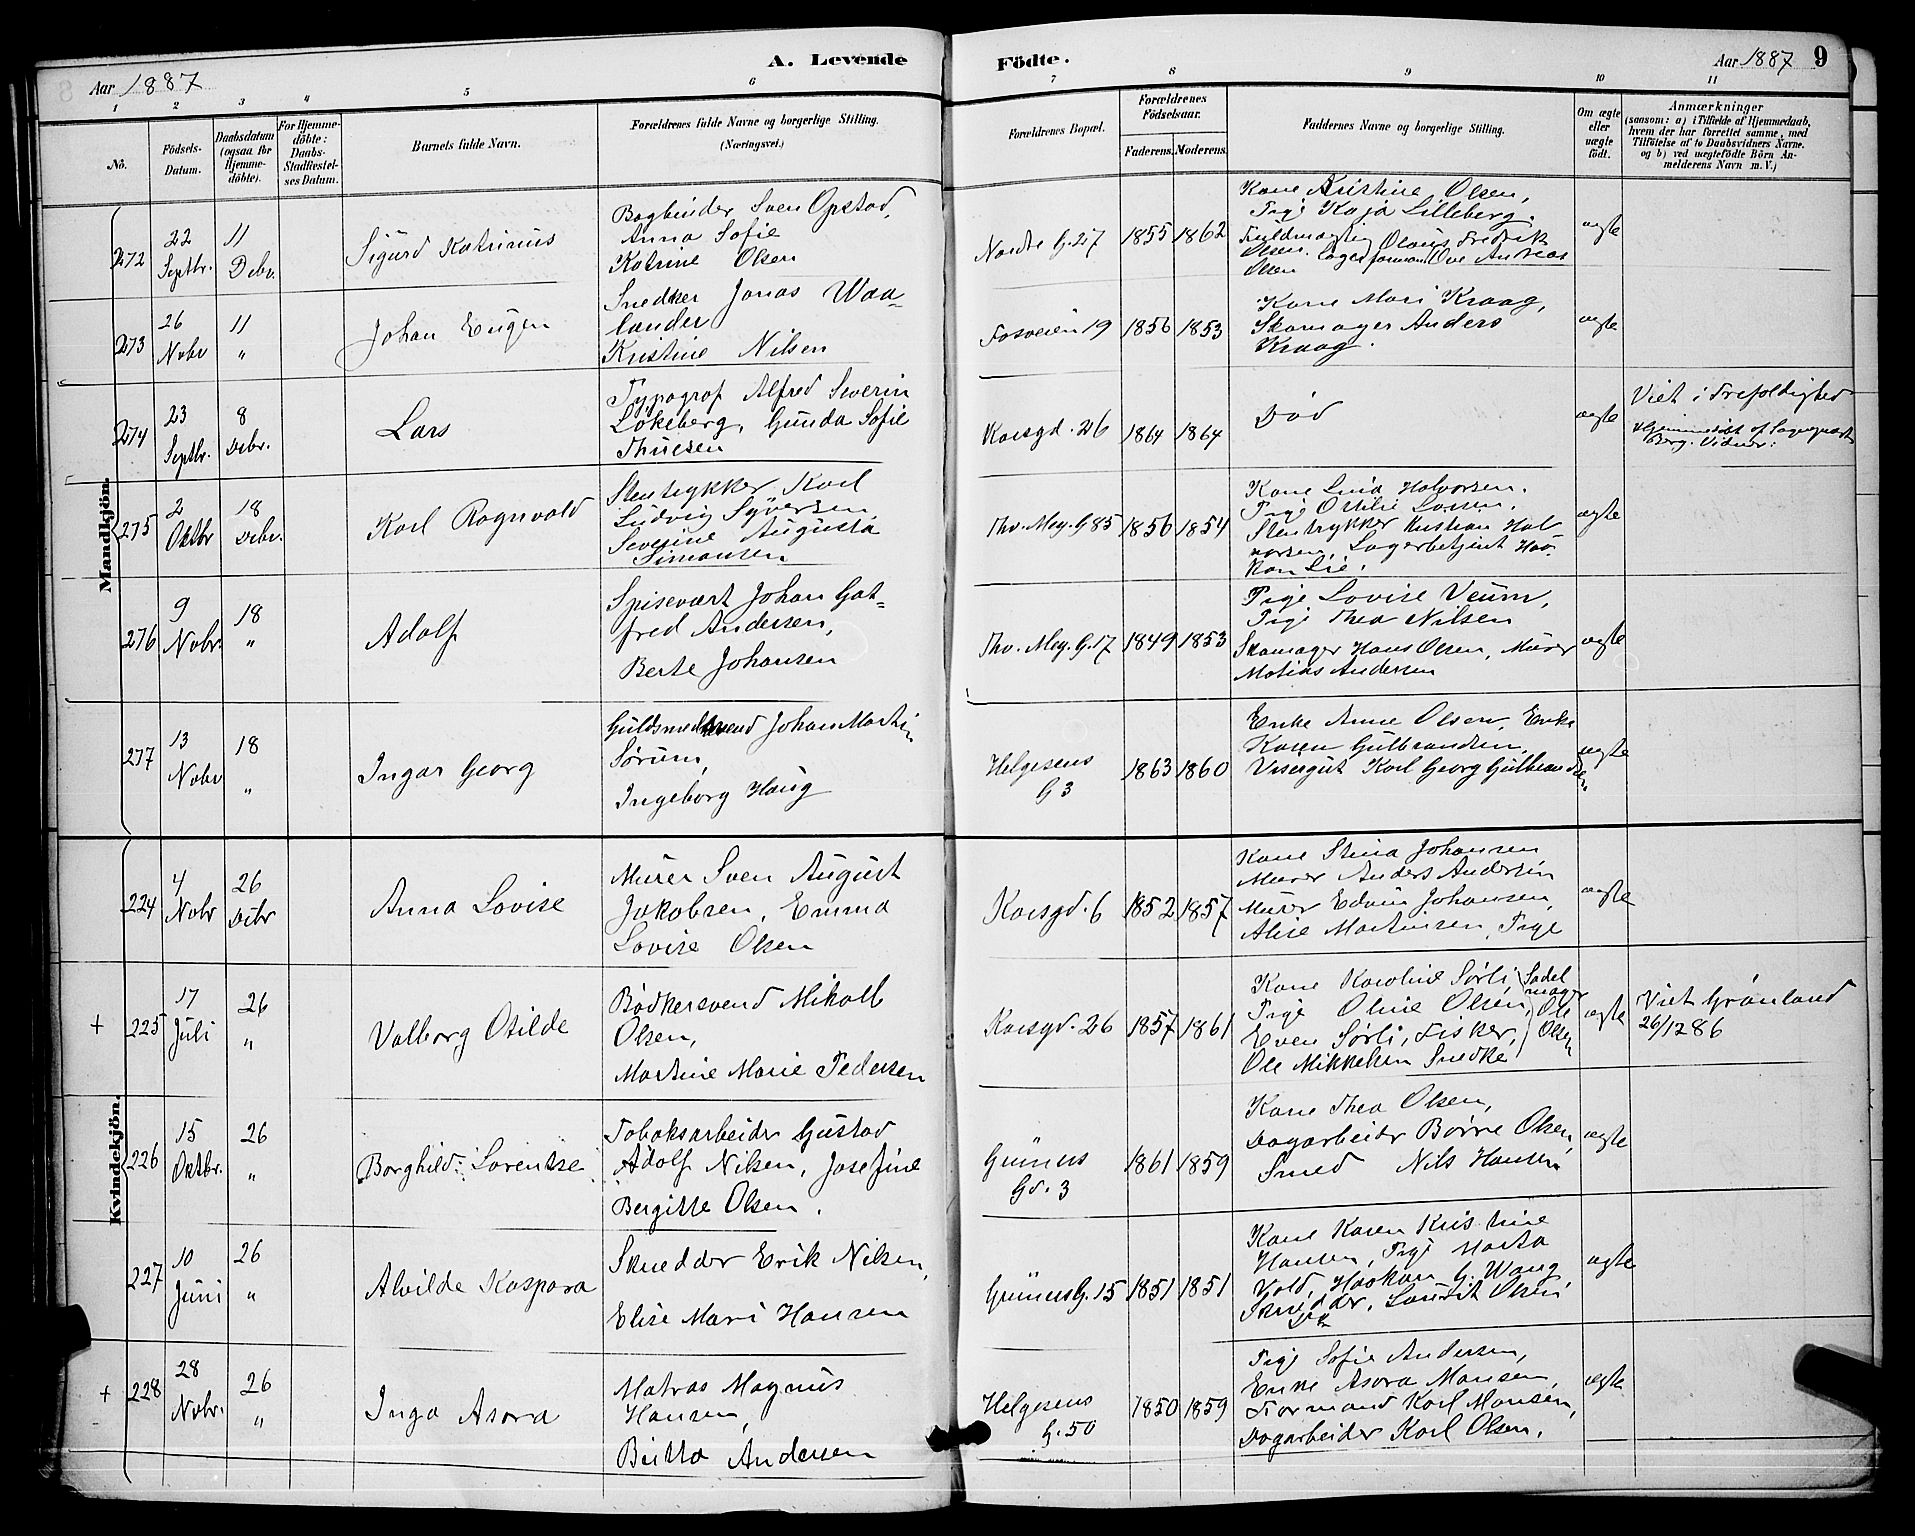 8 Aar 1887
A. Levende
Födte.
Aar 1887 9
1 2 3 4 5 6 7 8 9 10 11
Nö.
Födsels-
Datum.
Daabsdatum
(ogsaa for
Hjemme-
döbte).
For Hjemme-
döbte:
Daabs-
Stadfæstel-
ses Datum.
Barnets fulde Navn.
Forældrenes fulde Navne og borgerlige Stilling.
(Næringsvei.)
Forældrenes Bopæl.
Forældrenes
Födselsaar.
Faderens. Moderens.
Faddernes Navne og borgerlige Stilling.
Om ægte
eller
uægte
födt.
Anmærkninger
(saasom: a) i Tilfælde af Hjemmedaab,
hvem der har forrettet samme, med
Tilföielse af to Daabsvidners Navne,
og b) ved uægtefödte Börn An-
melderens Navn m. V.)
Mandkjön.
272
22
Septbr.
11
Debr.
Sigurd Katrinus
Bogbinder Sven Opstad,
Anna Sofie
Katrine Olsen
Nordre G. 27
1855 1862
Kone Kristine Olsen,
Pige Kaja Lilleberg.
Fuldmægtig Olaus Fredrik
Olsen, Lagerformand Ove Andreas
Olsen
ægte
273
26
Nobr
11
"
Johan Eugen
Snedker Jonas Waa-
lander
Kristine Nilsen
Fosveien 19
1856 1853
Kone Mari Kraag,
Skomager Anders
Kraag.
ægte
274
23
Septbr.
8
Debr.
Lars
Typograf Alfred Severin
Løkeberg, Gunda Sofie
Thuesen
Korsgd. 26
1864 1864
Död
ægte
Viet i Trefoldighed
Hjemmedöbt af Sognepræst
Berg. Vidner:
275
2
Oktbr
18
Debr.
Karl Ragnvald
Stentrykker Karl
Ludvig Syversen,
Severine Augusta
Simonsen
Thv. Mey. G 85
1856 1854
Kone Lina Halvorsen.
Pige Ottilie Larsen.
Stentrykker Kristian Hal
vorsen, Lagerbetjent Haa-
kon Lie.
ægte
276
9
Nobr.
18
"
Adolf
Spisevært Johan Got-
fred Andersen,
Berte Johansen
Thv. Mey. G. 17
1849 1853
Pige Lovise Veum,
Pige Thea Nilsen
Skomager Hans Olsen, Murer
Matias Andersen
ægte
277
13
Nobr
18
"
Ingar Georg
Guldsmedsvend Johan Martin
Sørum,
Ingeborg Haug
Helgesens
G 3
1863 1860
Enke Anne Olsen, Enke
Karen Gulbrandsen,
Visergut Karl Georg Gulbrandsen.
ægte
Kvindekjön.
224
4
Nobr
26
Debr
Anna Lovise
Murer Sven August
Jakobsen, Emma
Lovise Olsen
Korsgd. 6
1852 1857
Kone Stina Johansen
Murer Anders Andersen
Murer Edvin Johansen,
Alise Martinsen, Pige
ægte
+ 225
17
Juli
26
"
Valborg Otilde
Bødkersvend Mikael
Olsen,
Martine Marie Pedersen
Korsgd. 26
1857 1861
Kone Karoline Sørli,
Pige Oline Olsen,
Even Sørli, Fisker,
Ole Mikkelsen Snedke
Sadel
mager
Ole
Olsen
ægte
Viet Grönland
26/12 86
226
15
Oktbr.
26
"
Borghild Lorentse
Tobaksarbeider Gustav
Adolf Nilsen, Josefine
Bergitte Olsen.
Grüners
Gd. 3
1861 1859
Kone Thea Olsen,
Dagarbeider Børre Olsen,
Smed Nils Hansen
ægte
227
10
Juni
26
"
Alvilde Kaspara
Skredder Erik Nilsen,
Elise Mari Hansen
Grüners G. 15
1851 1851
Kone Karen Kristine
Hansen, Pige Marta
Vold, Haakon G. Wang,
Skredder, Laurit Olsen
Do
ægte
+ 228
28
Nobr.
26
"
Inga Asora
Matros Magnus
Hansen,
Britta Andersen
Helgesens
G. 50
1850 1859
Pige Sofie Andersen,
Enke Asora Monsen,
Formand Karl Monsen,
Dagarbeider Karl Olsen.
ægte